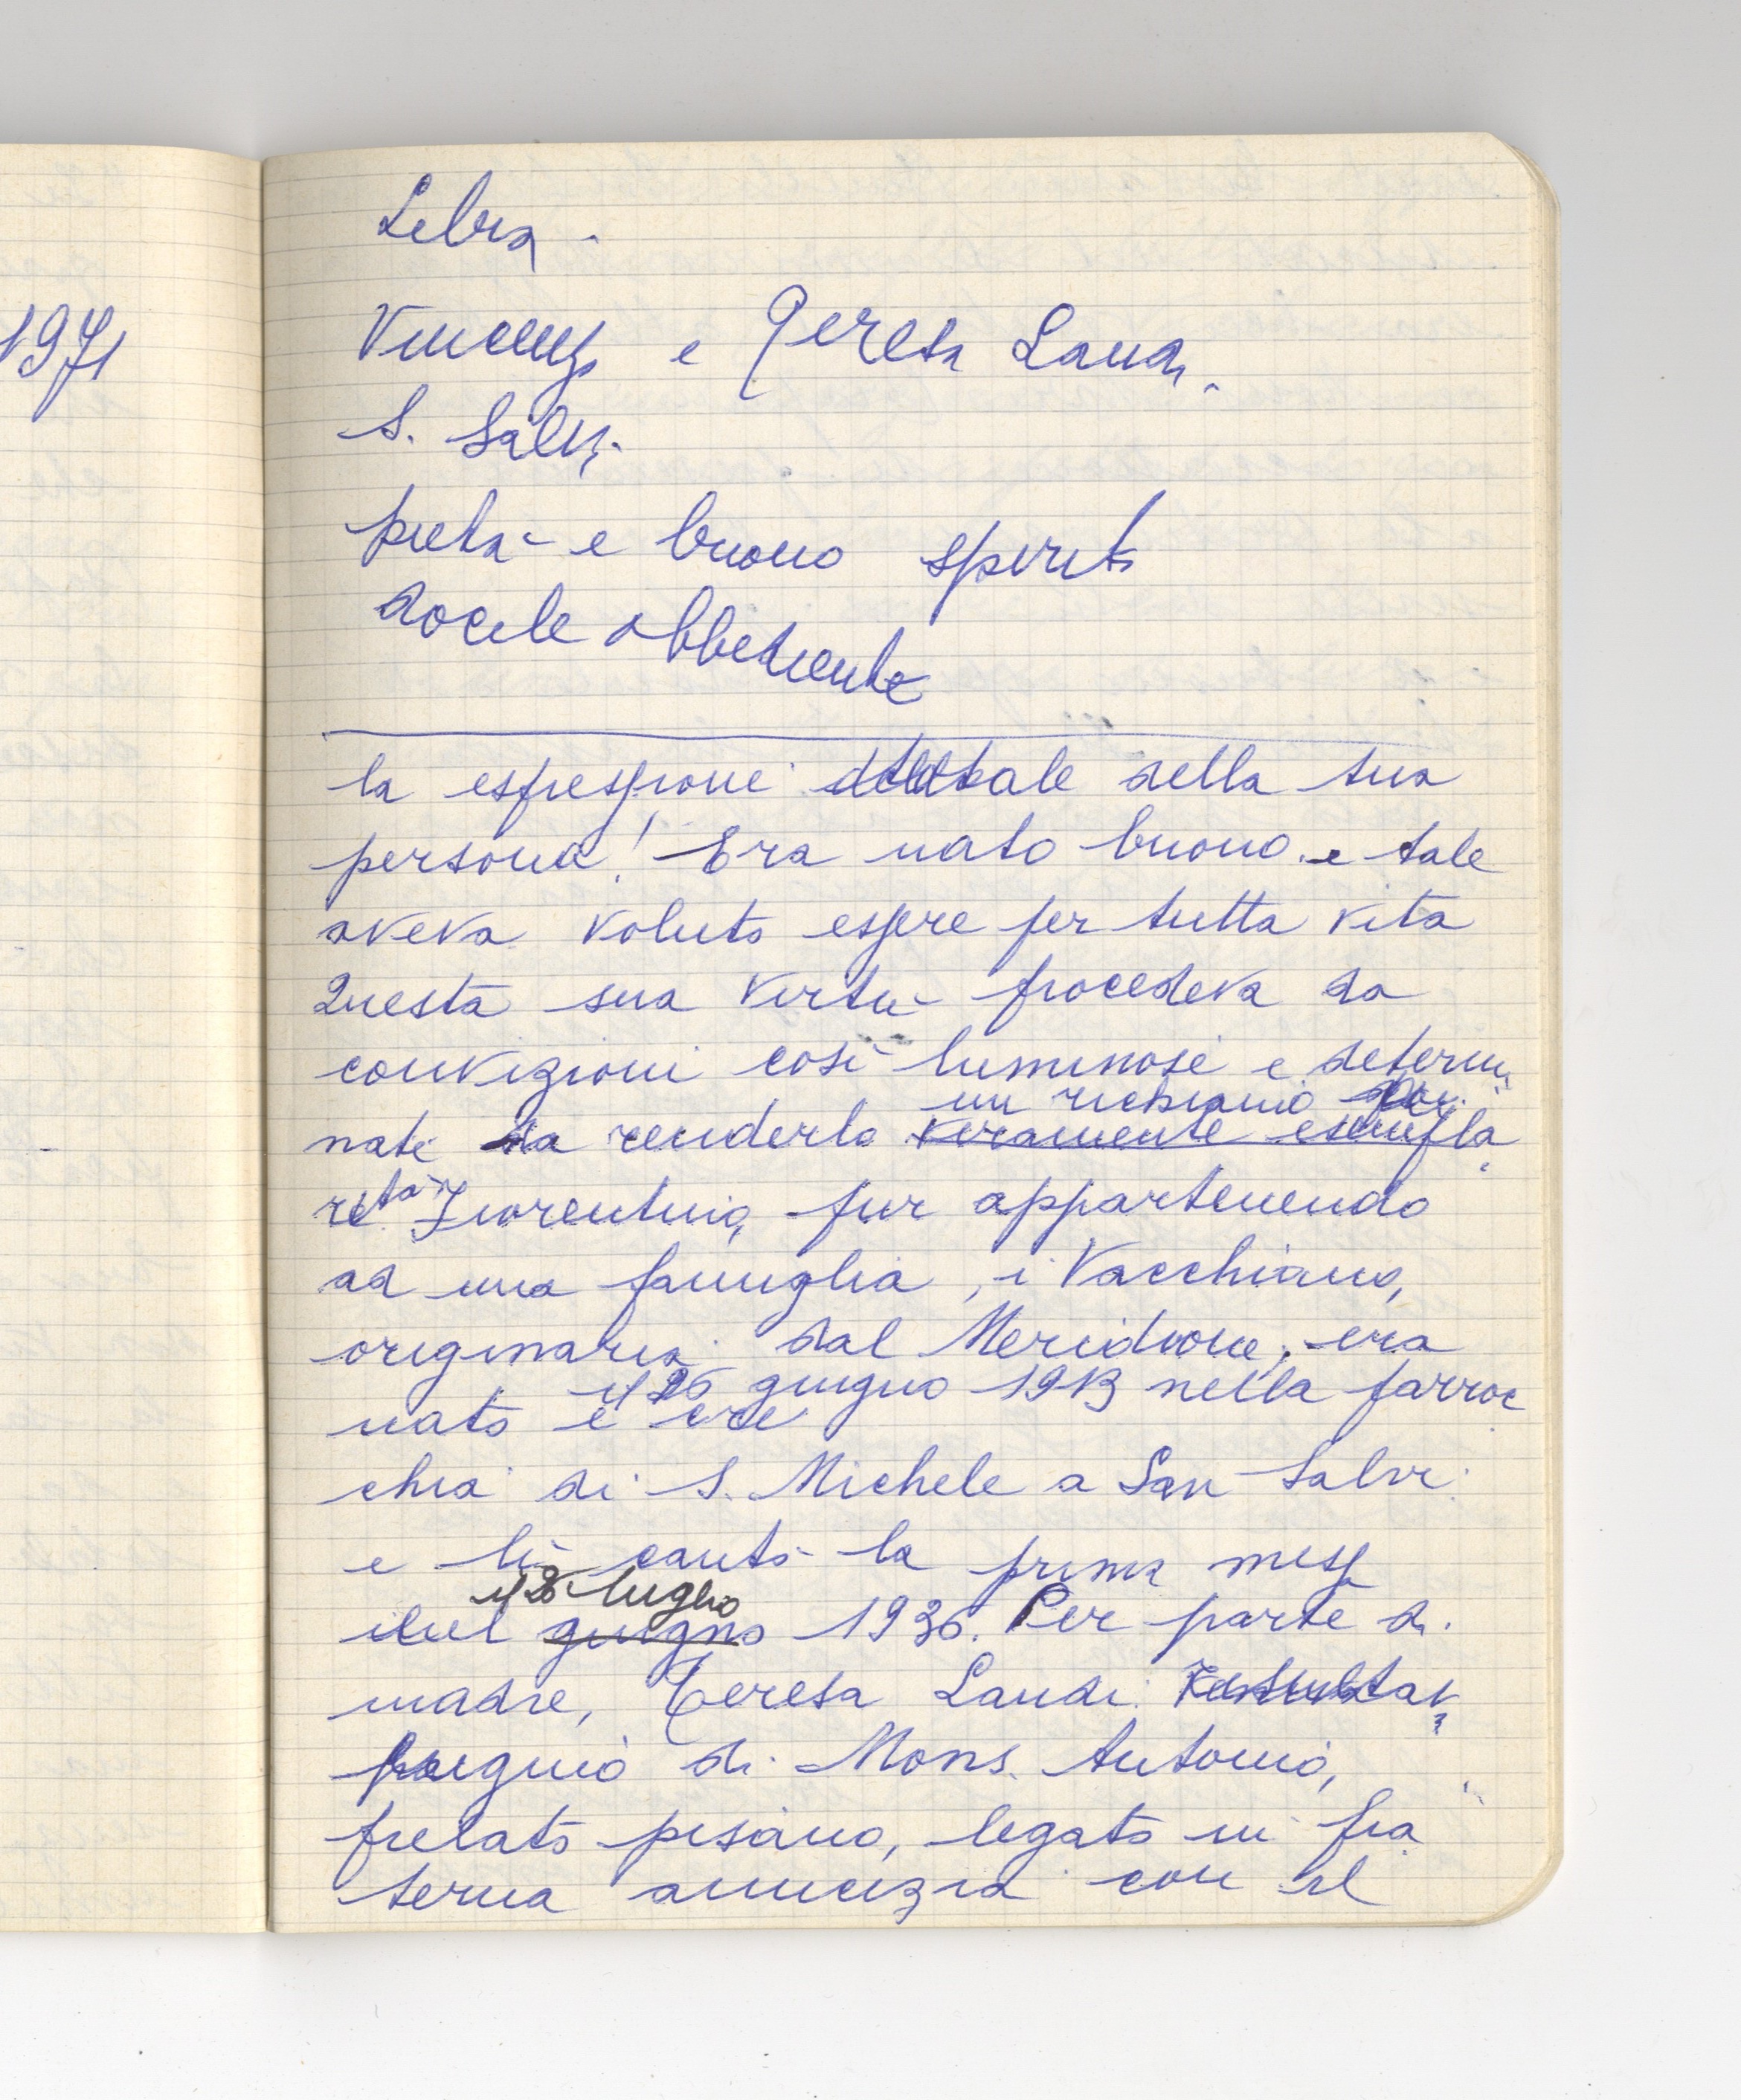 1971
Libra.
Vincenzo e Teresa Landi.
S. Salvi.
pietà e buono spirito
docile obbediente
la espressione totale della sua
persona! Era nato buono e tale
aveva voluto essere per tutta vita
Questa sua virtù procedeva da
convinzioni così luminose e determi
un richiamo
nate da renderla veramente esempla
re. Fiorentino, pur appartenendo
ad una famiglia, i Vacchiano,
originaria dal Meridione, era
il 26 giugno 1913 nella parroc
nato e
chia di S. Michele a San Salvi
e lì cantò la prima messa
il 26 luglio
nel giugno 1936. Per parte di
madre, Teresa Landi
di Mons. Antonio,
prelato pisano, legato in fra
terna amicizia con il